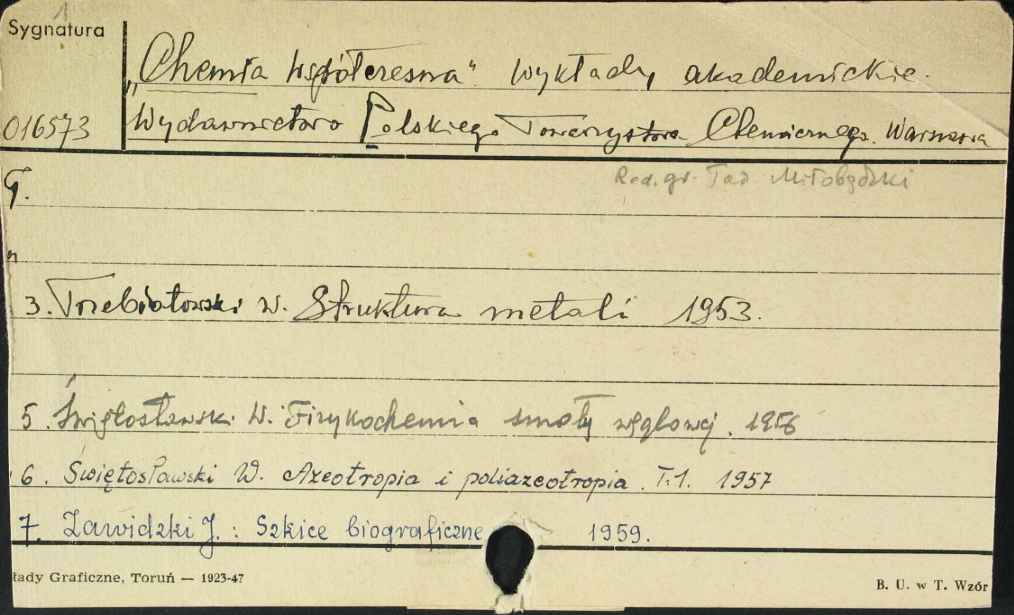 Sygnatura
„Chemia współczesna" wykłady akademickie.
016573 Wydawnictwo Polskiego Towarzystwa Chemicznego. Warszawa
Red. gr. Tad. Miłobędzki
T.
"
3. Trzebiatowski W. Struktura metali 1953.
5. Świętosławski W. Fizykochemia smoły węglowej. 1956
6. Świętosławski W. Azeotropia i poliazeotropia. T.1. 1957
7. Zawidzki J. : Szkice biograficzne 1959.
łady Graficzne, Toruń — 1923-47
B. U. w T. Wzór